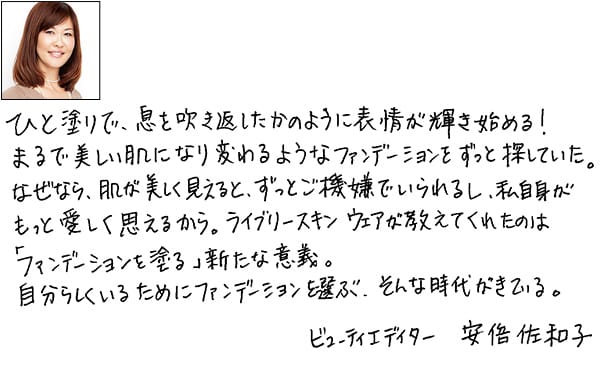 ひと塗りで、息を吹き返したかのように表情が輝き始める!
まるで美しい肌になり変わるようなファンデーションをずっと探していた。
なぜなら、肌が美しく見えると、ずっとご機嫌でいられるし、私自身が
もっと愛しく思えるから。ライブリースキン ウェアが教えてくれたのは
「ファンデーションを塗る」新たな意義。
自分らしくいるためにファンデーションを選ぶ、そんな時代がきている。
ビューティエディター 安倍佐和子